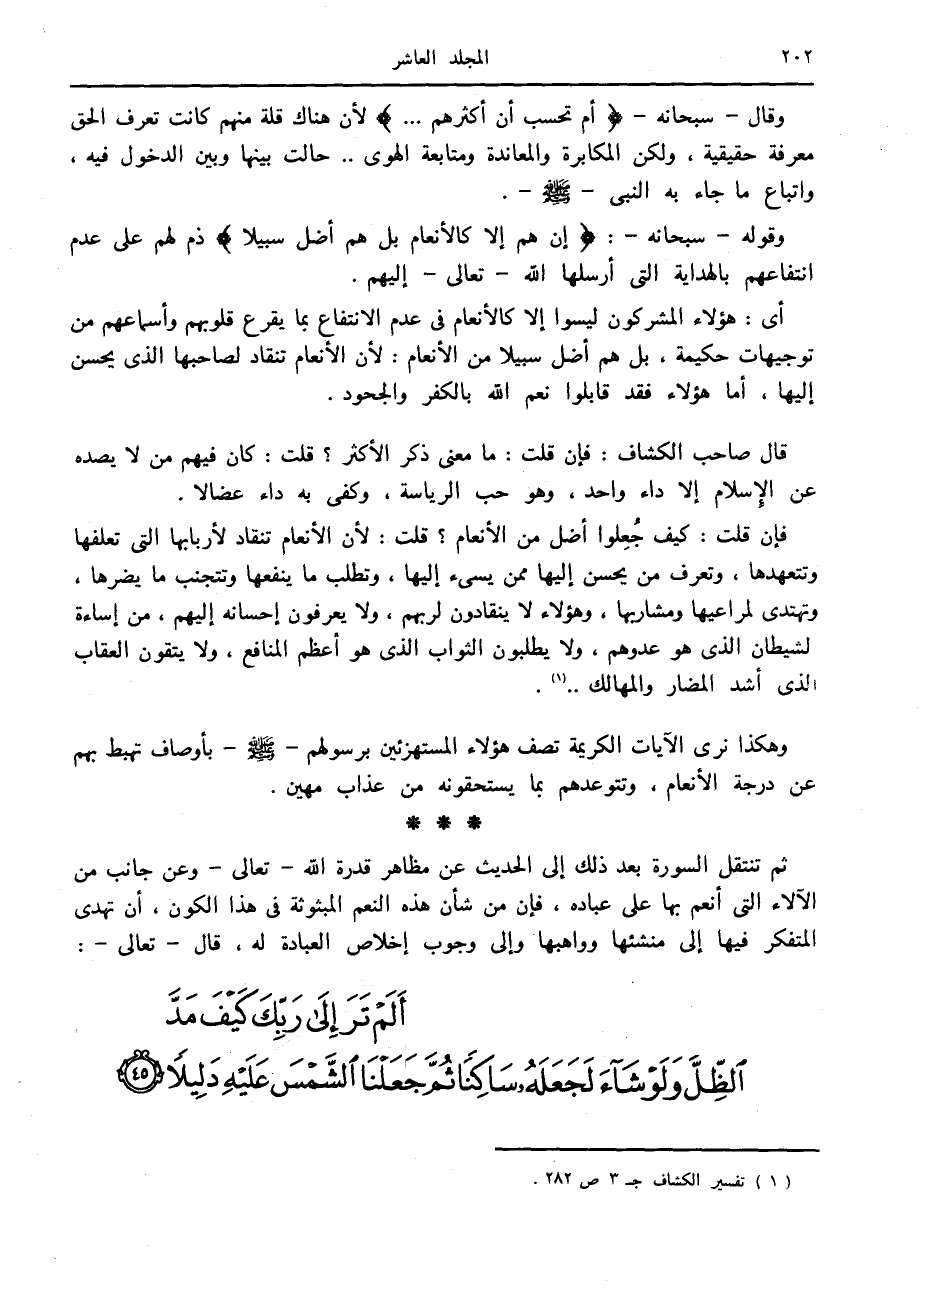 ٢٠٢ المجلد العاشر
وقال – سبحانه – ﴿ أم تحسب أن أكثرهم ... ﴾ لأن هناك قلة منهم كانت تعرف الحق
معرفة حقيقية ، ولكن المكابرة والمعاندة ومتابعة الهوى .. حالت بينها وبين الدخول فيه ،
واتباع ما جاء به النبى – ﷺ – .
وقوله – سبحانه – : ﴿ إن هم إلا كالأنعام بل هم أضل سبيلا ﴾ ذم لهم على عدم
انتفاعهم بالهداية التى أرسلها الله – تعالى – إليهم .
أى : هؤلاء المشركون ليسوا إلا كالأنعام فى عدم الانتفاع بما يقرع قلوبهم وأسماعهم من
توجيهات حكيمة ، بل هم أضل سبيلا من الأنعام : لأن الأنعام تنقاد لصاحبها الذى يحسن
إليها ، أما هؤلاء فقد قابلوا نعم الله بالكفر والجحود .
قال صاحب الكشاف : فإن قلت : ما معنى ذكر الأكثر ؟ قلت : كان فيهم من لا يصده
عن الإِسلام إلا داء واحد ، وهو حب الرياسة ، وكفى به داء عضالا .
فإن قلت : كيف جُعِلوا أضل من الأنعام ؟ قلت : لأن الأنعام تنقاد لأربابها التى تعلفها
وتتعهدها ، وتعرف من يحسن إليها ممن يسىء إليها ، وتطلب ما ينفعها وتتجنب ما يضرها ،
وتهتدى لمراعيها ومشاربها ، وهؤلاء لا ينقادون لربهم ، ولا يعرفون إحسانه إليهم ، من إساءة
لشيطان الذى هو عدوهم ، ولا يطلبون الثواب الذى هو أعظم المنافع ، ولا يتقون العقاب
الذى أشد المضار والمهالك ..(١) .
وهكذا نرى الآيات الكريمة تصف هؤلاء المستهزئين برسولهم – ﷺ – بأوصاف تهبط بهم
عن درجة الأنعام ، وتتوعدهم بما يستحقونه من عذاب مهين .
* * *
ثم تنتقل السورة بعد ذلك إلى الحديث عن مظاهر قدرة الله – تعالى – وعن جانب من
الآلاء التى أنعم بها على عباده ، فإن من شأن هذه النعم المبثوثة فى هذا الكون ، أن تهدى
المتفكر فيها إلى منشئها وواهبها وإلى وجوب إخلاص العبادة له ، قال – تعالى – :
أَلَمْ تَرَ إِلَىٰ رَبِّكَ كَيْفَ مَدَّ
ٱلظِّلَّ وَلَوْ شَآءَ لَجَعَلَهُۥ سَاكِنًا ثُمَّ جَعَلْنَا ٱلشَّمْسَ عَلَيْهِ دَلِيلًا ﴿٤٥﴾
( ١ ) تفسير الكشاف جـ ٣ ص ٢٨٢ .